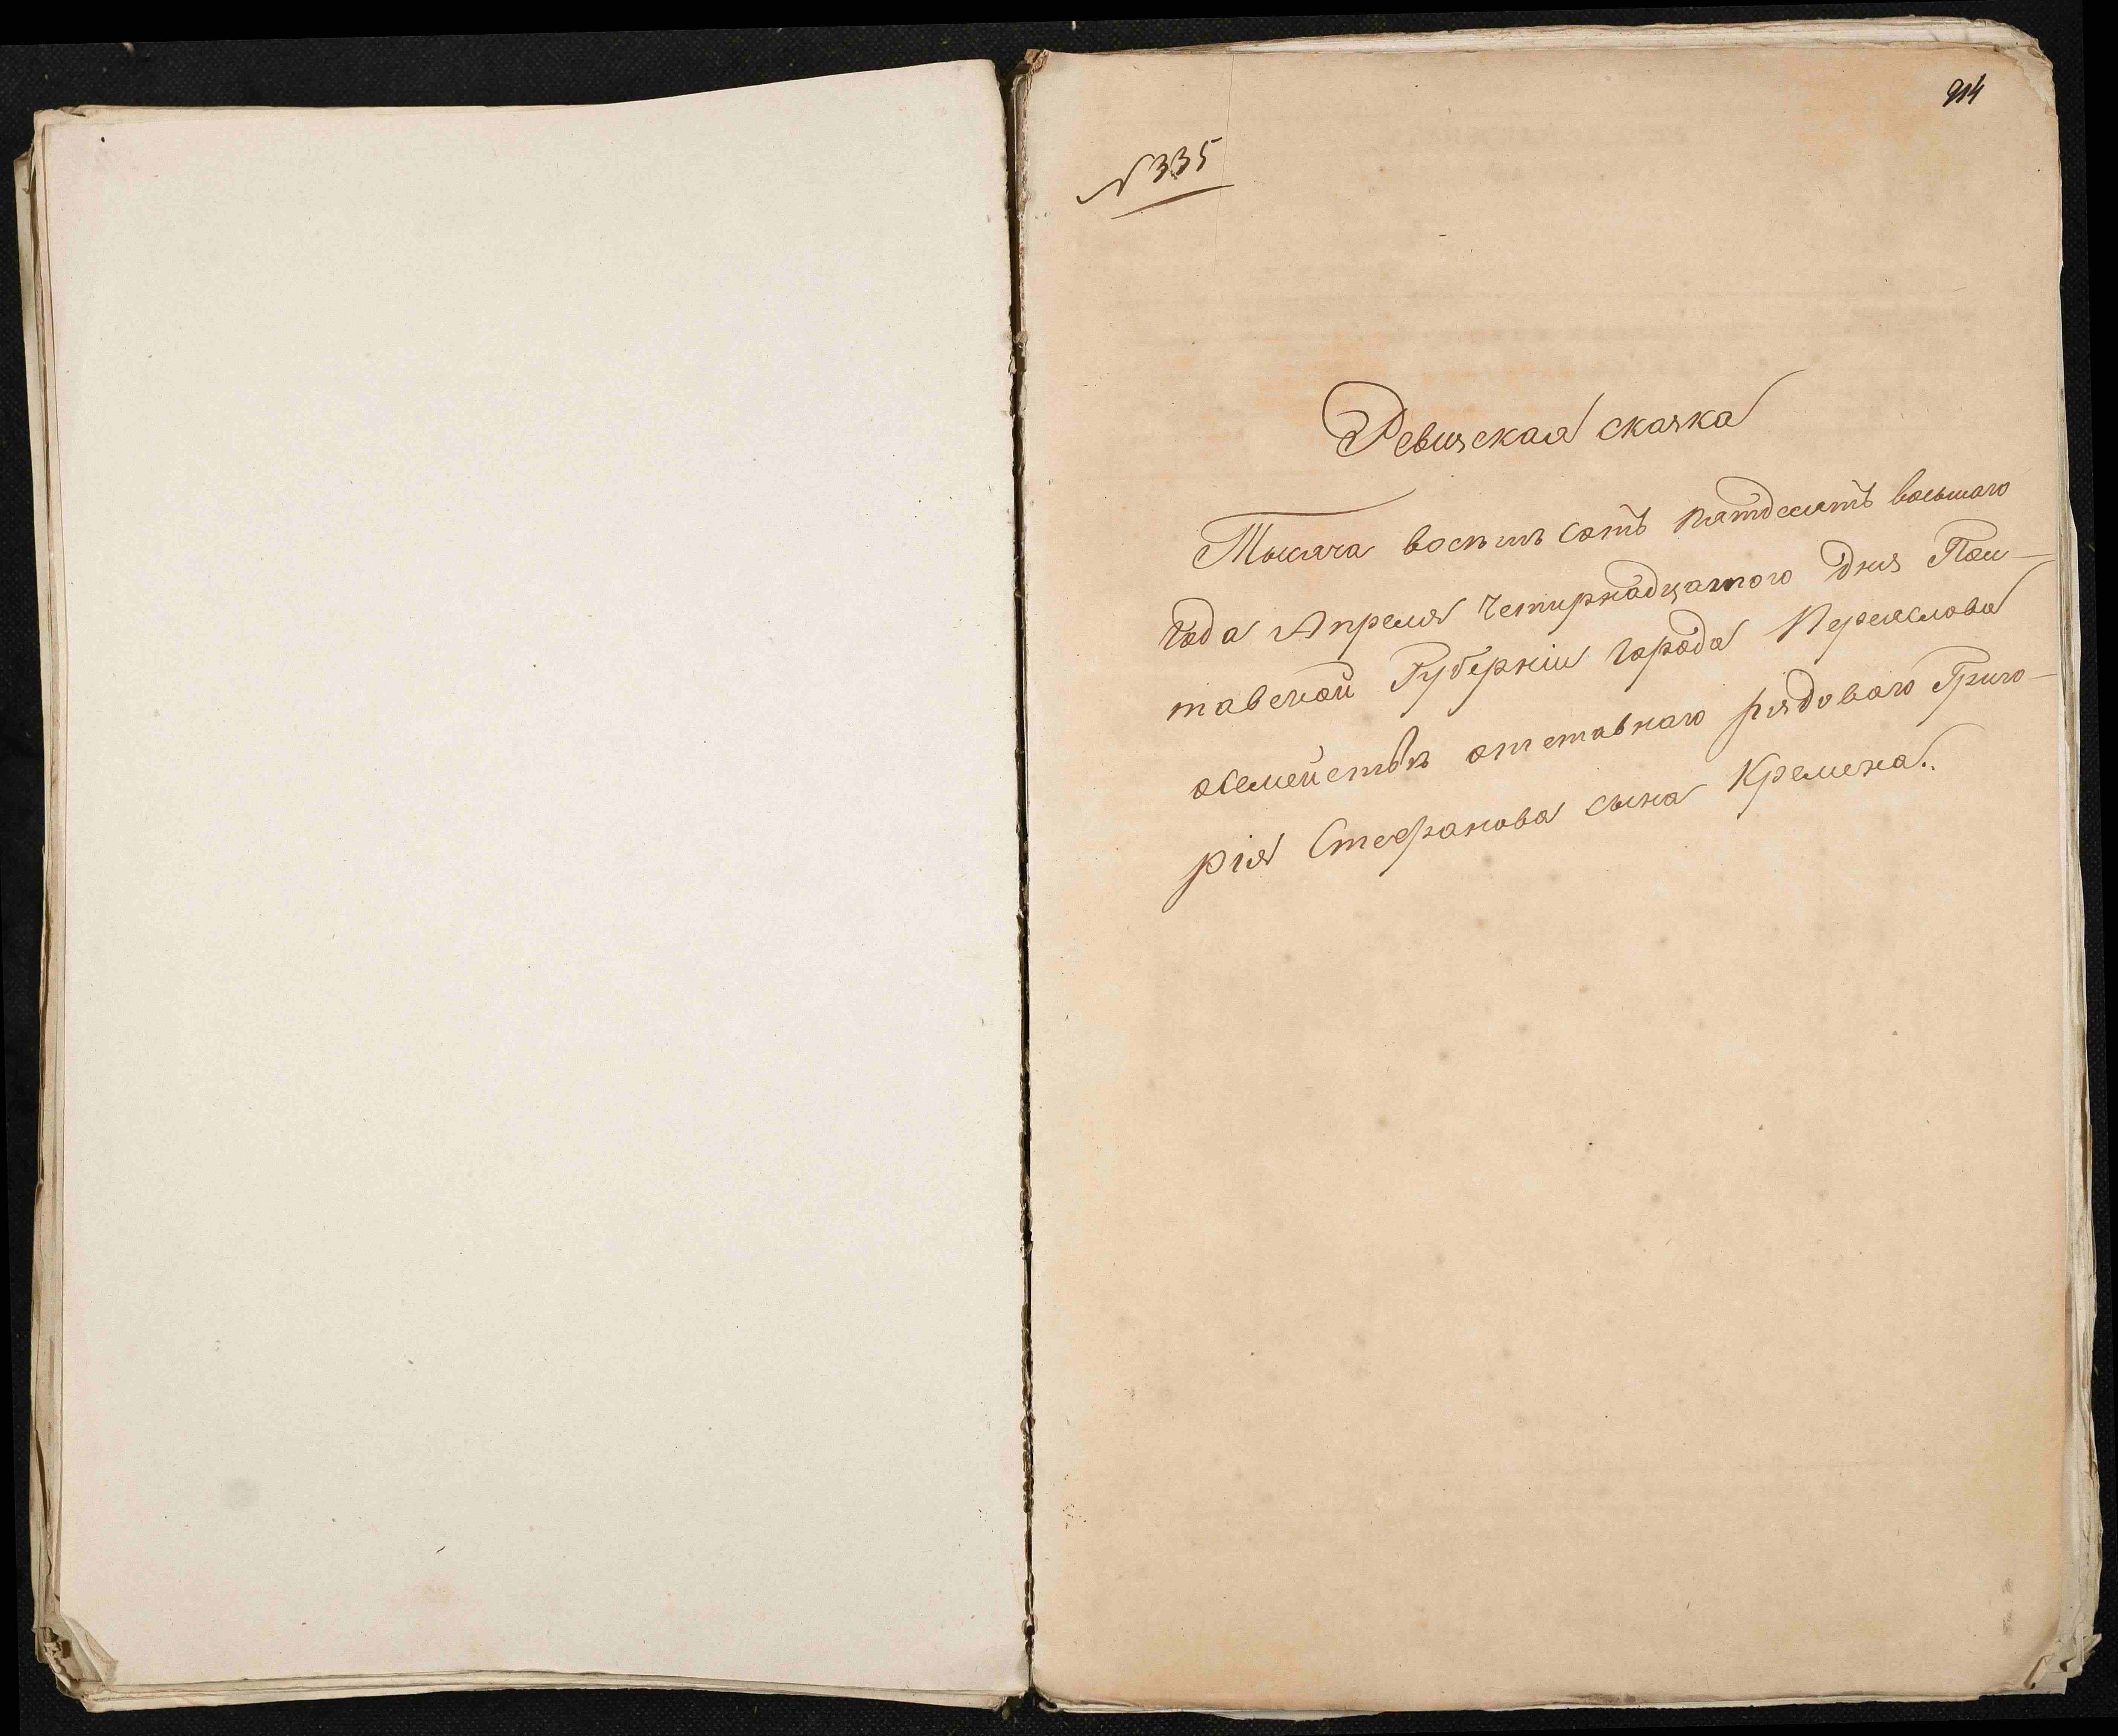 914
№335
Ревизская сказка
Тысяча восемь сотъ пятдесятъ восьмаго
года Апреля четирнадцатого дня Пол-
тавской Губерніи города Переяслова
осемействѣ отставнаго рядоваго Григо-
рія Стефанова сына Кремена.